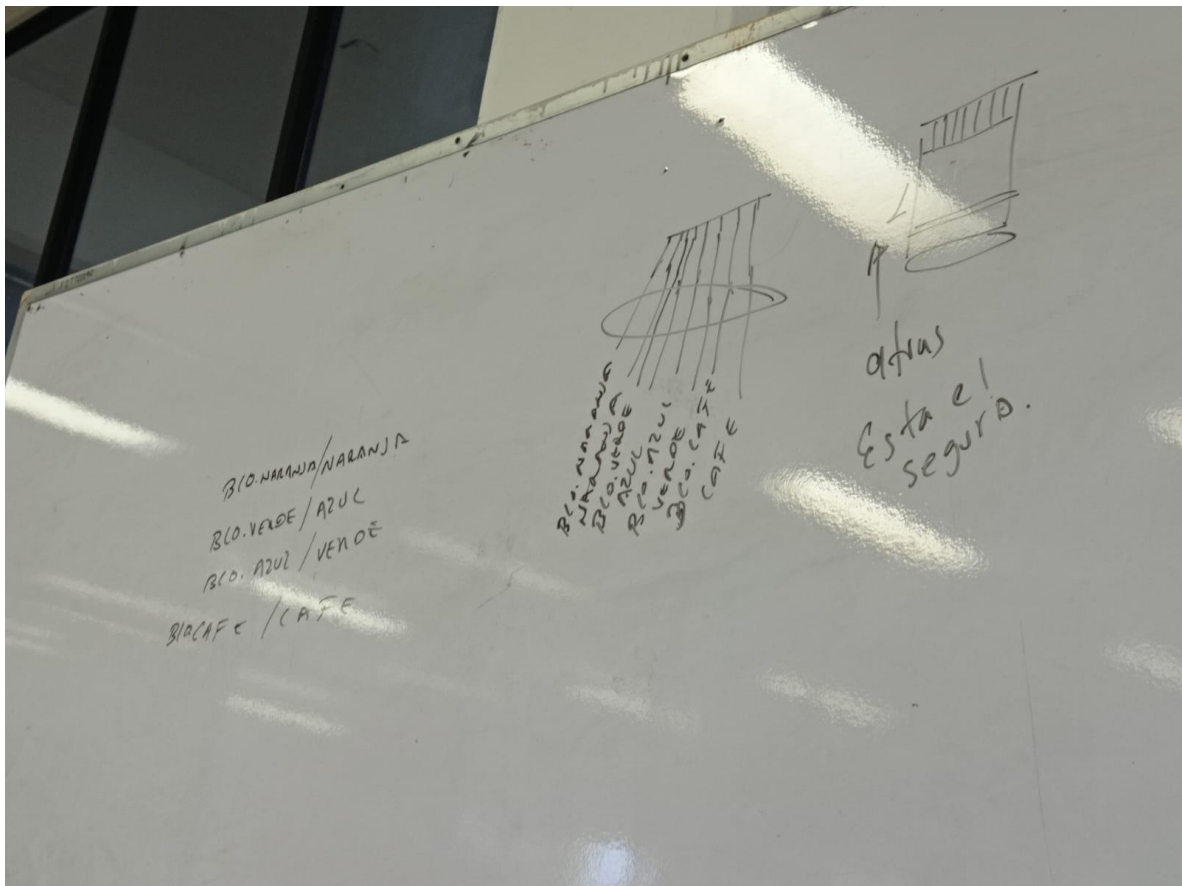 BCO.NARANJA/NARANJA
BCO.VERDE/AZUL
BCO.AZUL/VERDE
BCOCAFE/CAFE
BCO.NARANJA
NARANJA
BCO.VERDE
AZUL
BCO.AZUL
VERDE
BCO.CAFE
CAFE
atras
Esta el
seguro.